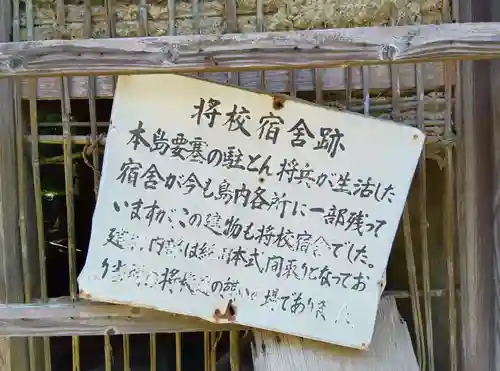 将校宿舎跡
本島要塞の駐とん将兵が生活した
宿舎が今も島内各所に一部残って
いますが、この建物も将校宿舎でした。
建 内 は純日本式間取りとなってお
り当時の将校達の憩いの場でありました